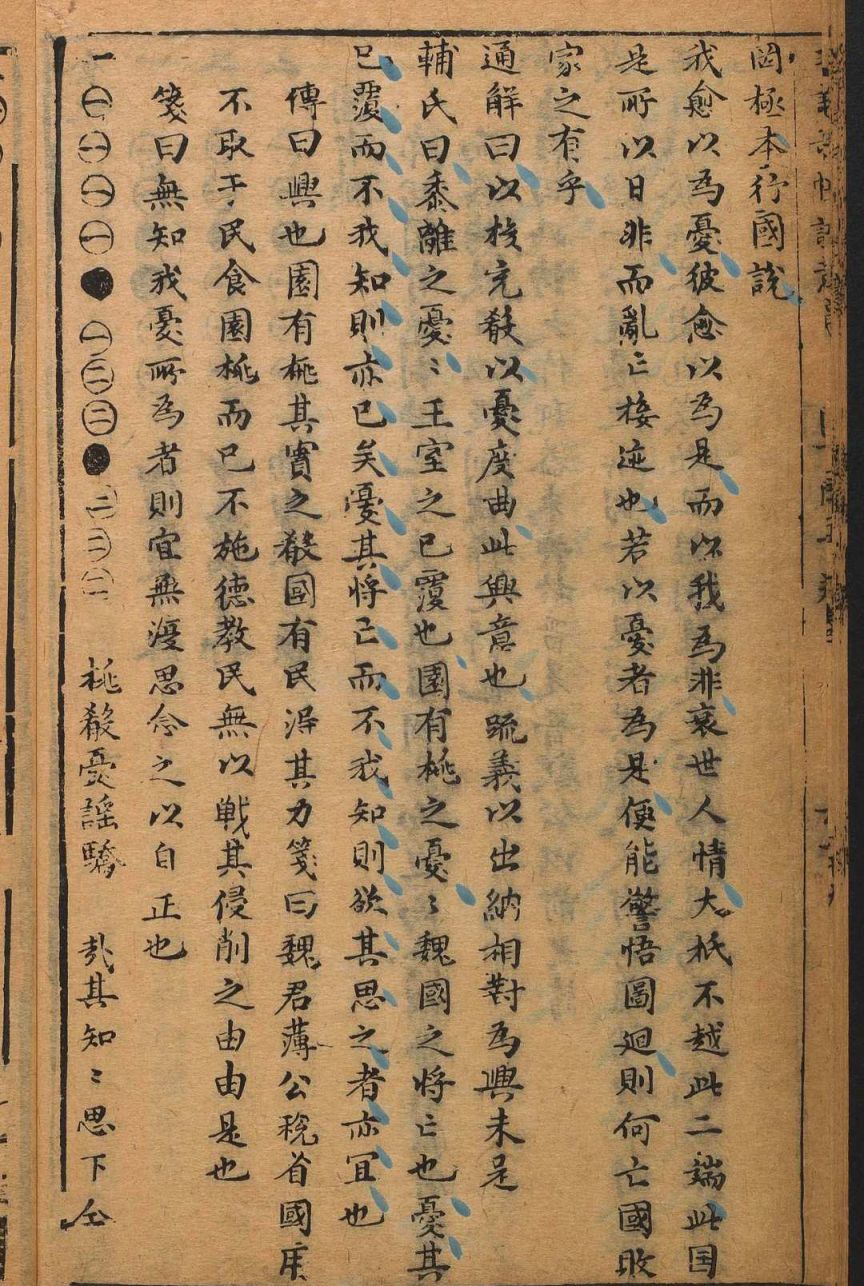 罔極本行國說
我愈以為憂彼愈以為是而以我為非衰世人情大抵不越此二端此国
是所以日非而亂亡接迹也若以憂者為是便能警悟圖廻則何亡國敗
家之有乎
通解曰以核完殽以憂度曲此興意也疏義以出納相對為興未足
輔氏曰黍離之憂〻王室之已覆也園有桃之憂〻魏國之将亡也憂其
已覆而不我知則亦已矣憂其将亡而不我知則欲其思之者亦宜也
傳曰興也園有桃其實之殽国有民淂其力箋曰魏君薄公稅省國用
不取于民食園桃而已不施德教民無以戦其侵削之由由是也
箋曰無知我憂所為者則宜無復思念之以自正也
一㊀㊀㊀㊀● ㊀㊁㊁● 桃殽憂謡驕 哉其知〻思下仝